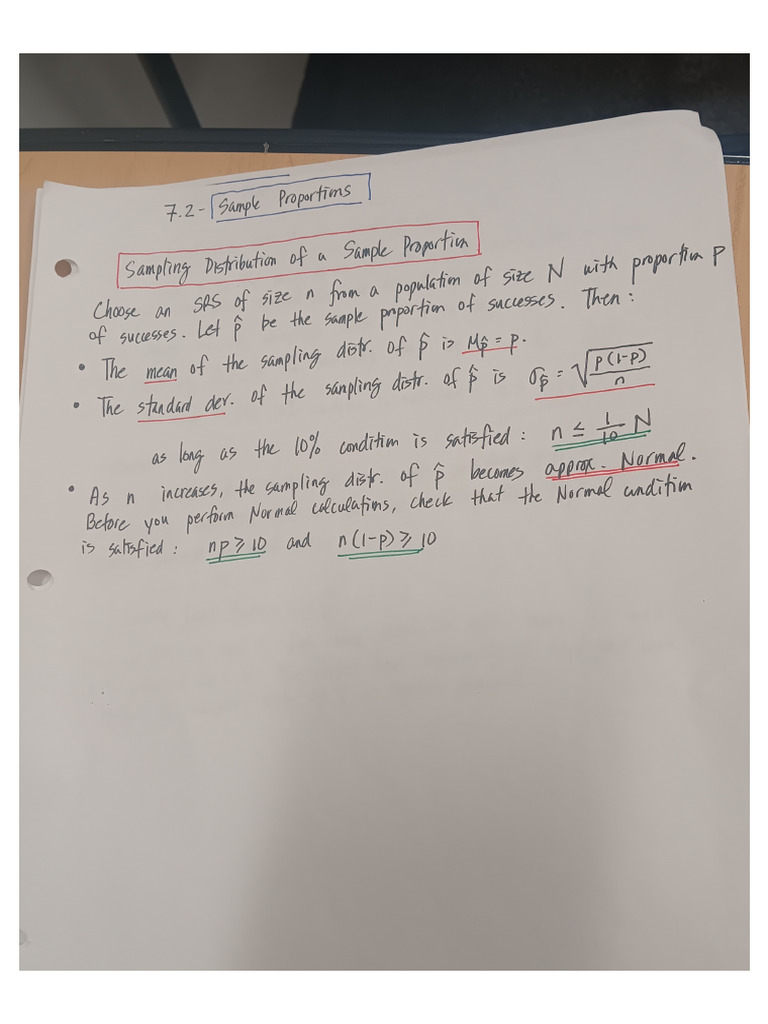 7.2 - Sample Proportions
Sampling Distribution of a Sample Proportion
Choose an SRS of size n from a population of size N with proportion p
of successes. Let p̂ be the sample proportion of successes. Then:
• The mean of the sampling distr. of p̂ is μp̂ = p.
• The standard dev. of the sampling distr. of p̂ is σp̂ = √(p(1-p)/n)
as long as the 10% condition is satisfied: n ≤ 1/10 N
• As n increases, the sampling distr. of p̂ becomes approx. Normal.
Before you perform Normal calculations, check that the Normal condition
is satisfied: np ≥ 10 and n(1-p) ≥ 10